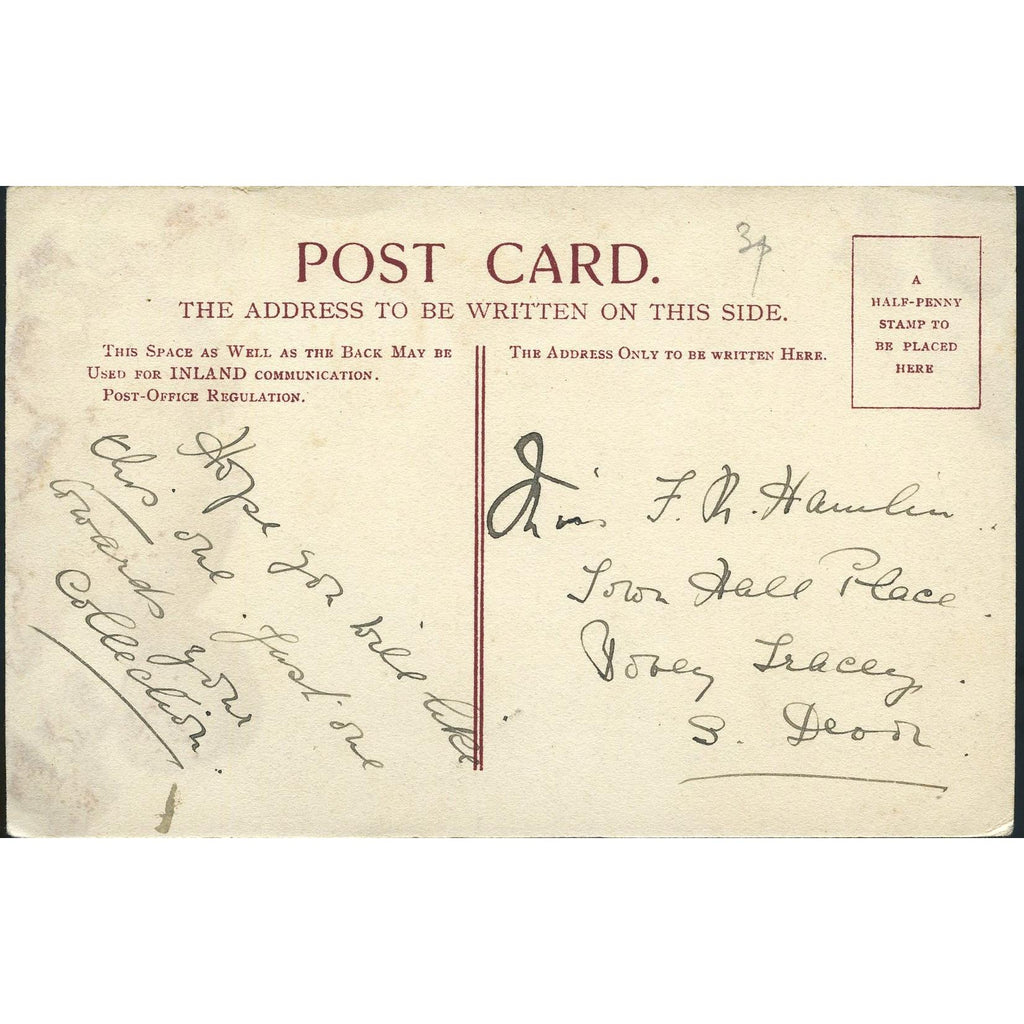 POST CARD.
THE ADDRESS TO BE WRITTEN ON THIS SIDE.
A
HALF-PENNY
STAMP TO
BE PLACED
HERE
THIS SPACE AS WELL AS THE BACK MAY BE
USED FOR INLAND COMMUNICATION.
POST-OFFICE REGULATION.
THE ADDRESS ONLY TO BE WRITTEN HERE.
Hope you will like
this one. Just one
towards your
collection.
Miss F. Hamlin
Town Hall Place.
Bovey Tracey.
S. Devon.